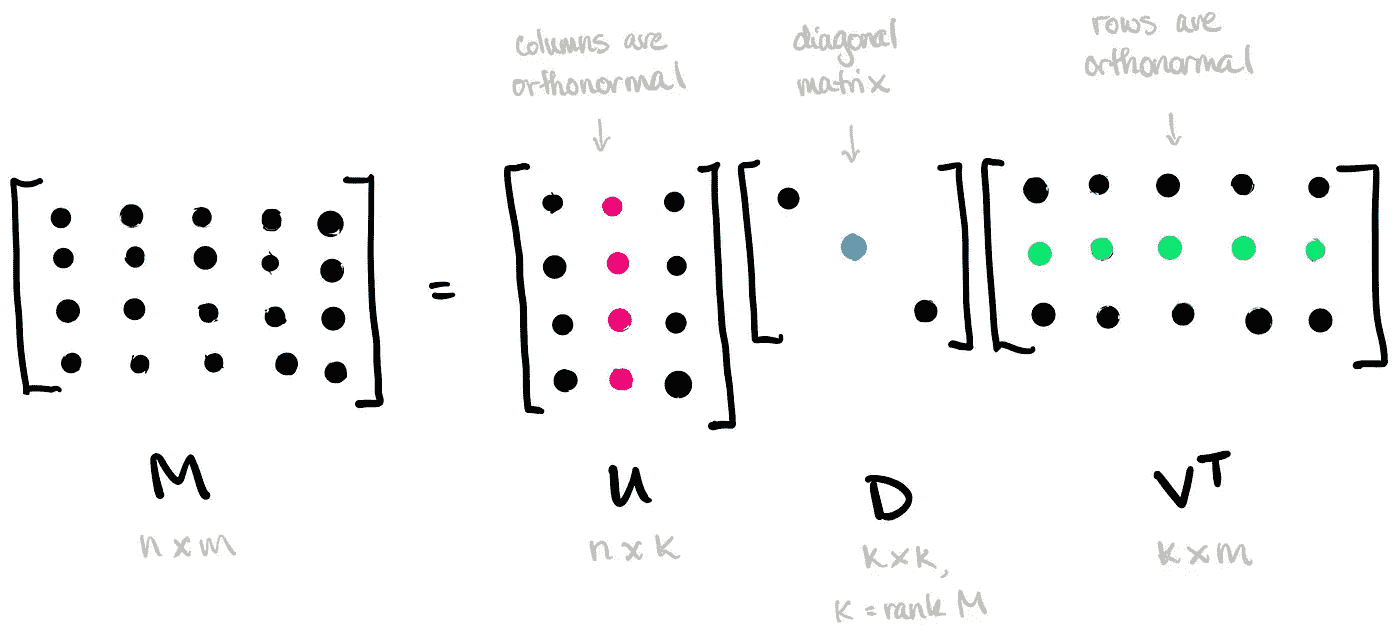 columns are
orthonormal
diagonal
matrix
rows are
orthonormal
=
M
U
D
Vᵀ
n x m
n x k
k x k,
k = rank M
k x m